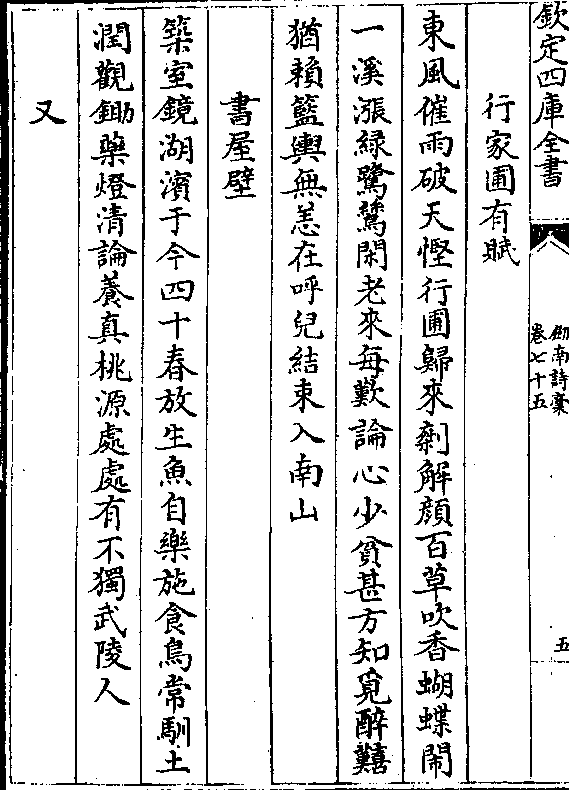 欽定四庫全書
劒南詩稾
卷七十五
五
行家圃有賦
東風催雨破天慳行圃歸來剰解顔百草吹香蝴蝶鬧
一溪漲緑鷺鷥閑老來每歎論心少貧甚方知覓醉囏
猶賴籃輿無恙在呼兒結束入南山
書屋壁
築室鏡湖濱于今四十春放生魚自樂施食鳥常馴土
潤觀鋤藥燈清論養真桃源處處有不獨武陵人
又